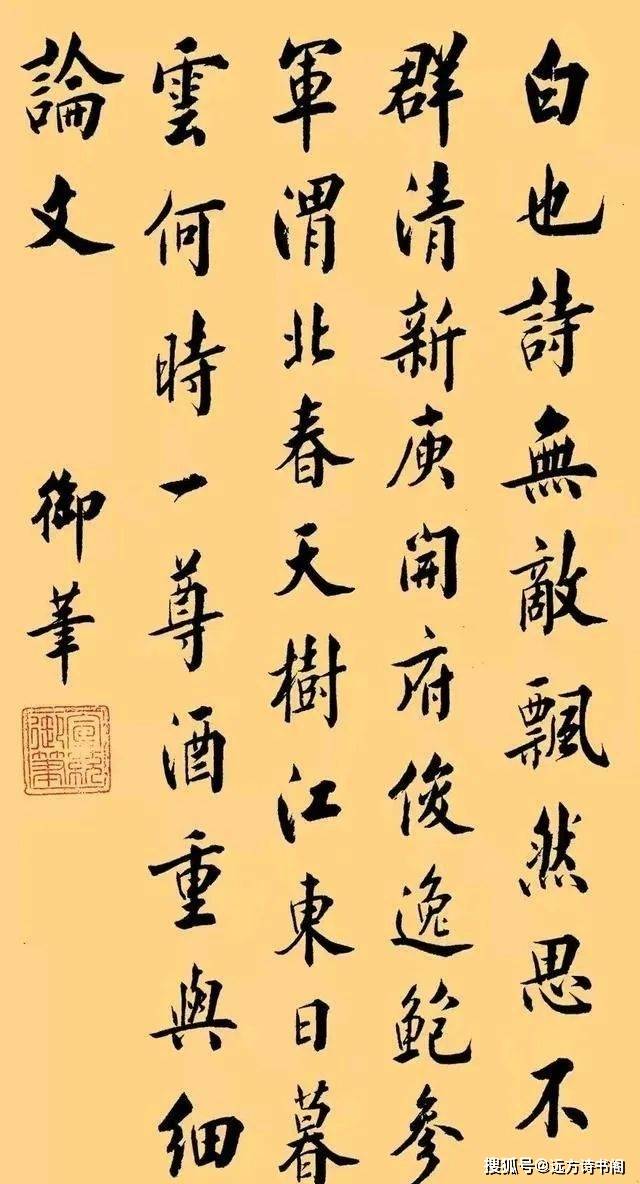 白也詩無敵飄然思不
群清新庾開府俊逸鮑參
軍渭北春天樹江東日暮
雲何時一尊酒重與細
論文
御筆
宣統御筆
搜狐号@远方诗书阁